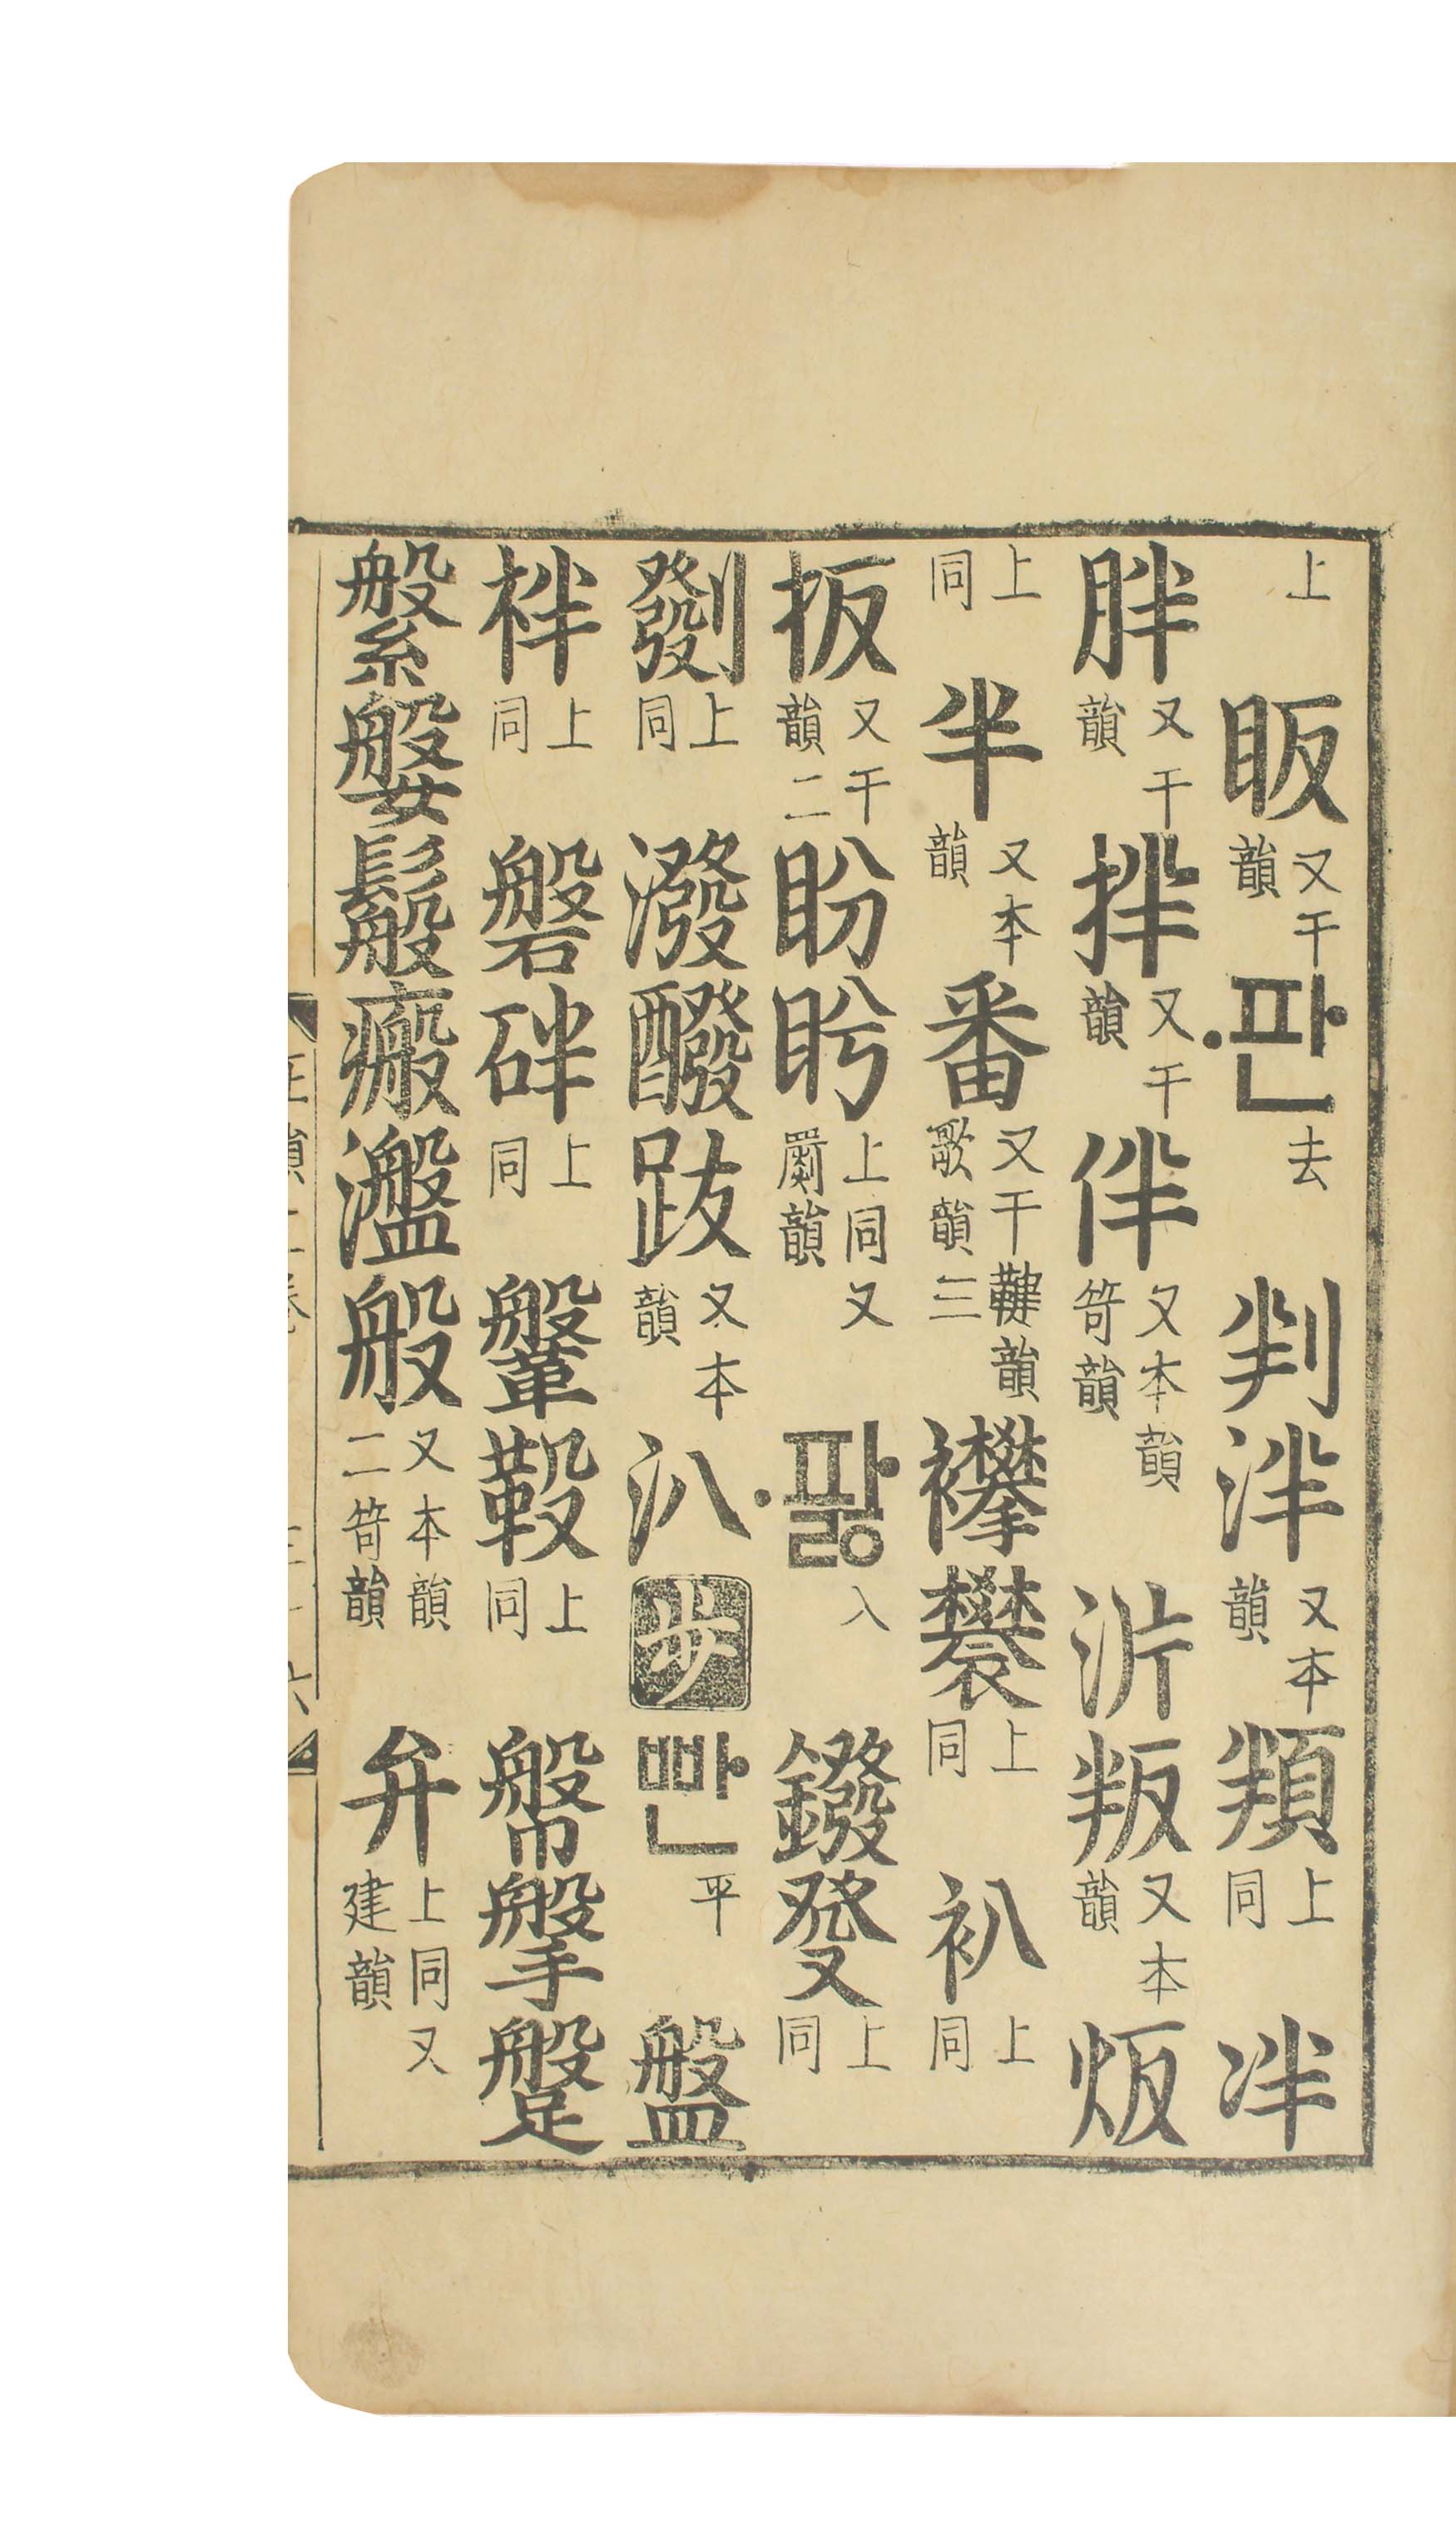 上 眅 又干韻 ·판 去 判 泮 又本韻 頖 上同 冸
胖 又干韻 拌 又干韻 伴 又本韻笴韻 沜 叛 又本韻 炍
上同 半 又本韻 番 又干鞬韻歌韻三 襻 上同 䘰 上同
扳 又干韻二 盼 盻 上同又罽韻 ·팛 入 鏺 癹 上同
劉 上同 潑 醱 跋 又本韻 汃 步 빤 平 盤
柈 上同 磐 砰 上同 鞶 鞁 上同 幋 搫 蹣
縏 媻 鬆 瘢 瀊 般 又本韻二笴韻 弁 上同又建韻